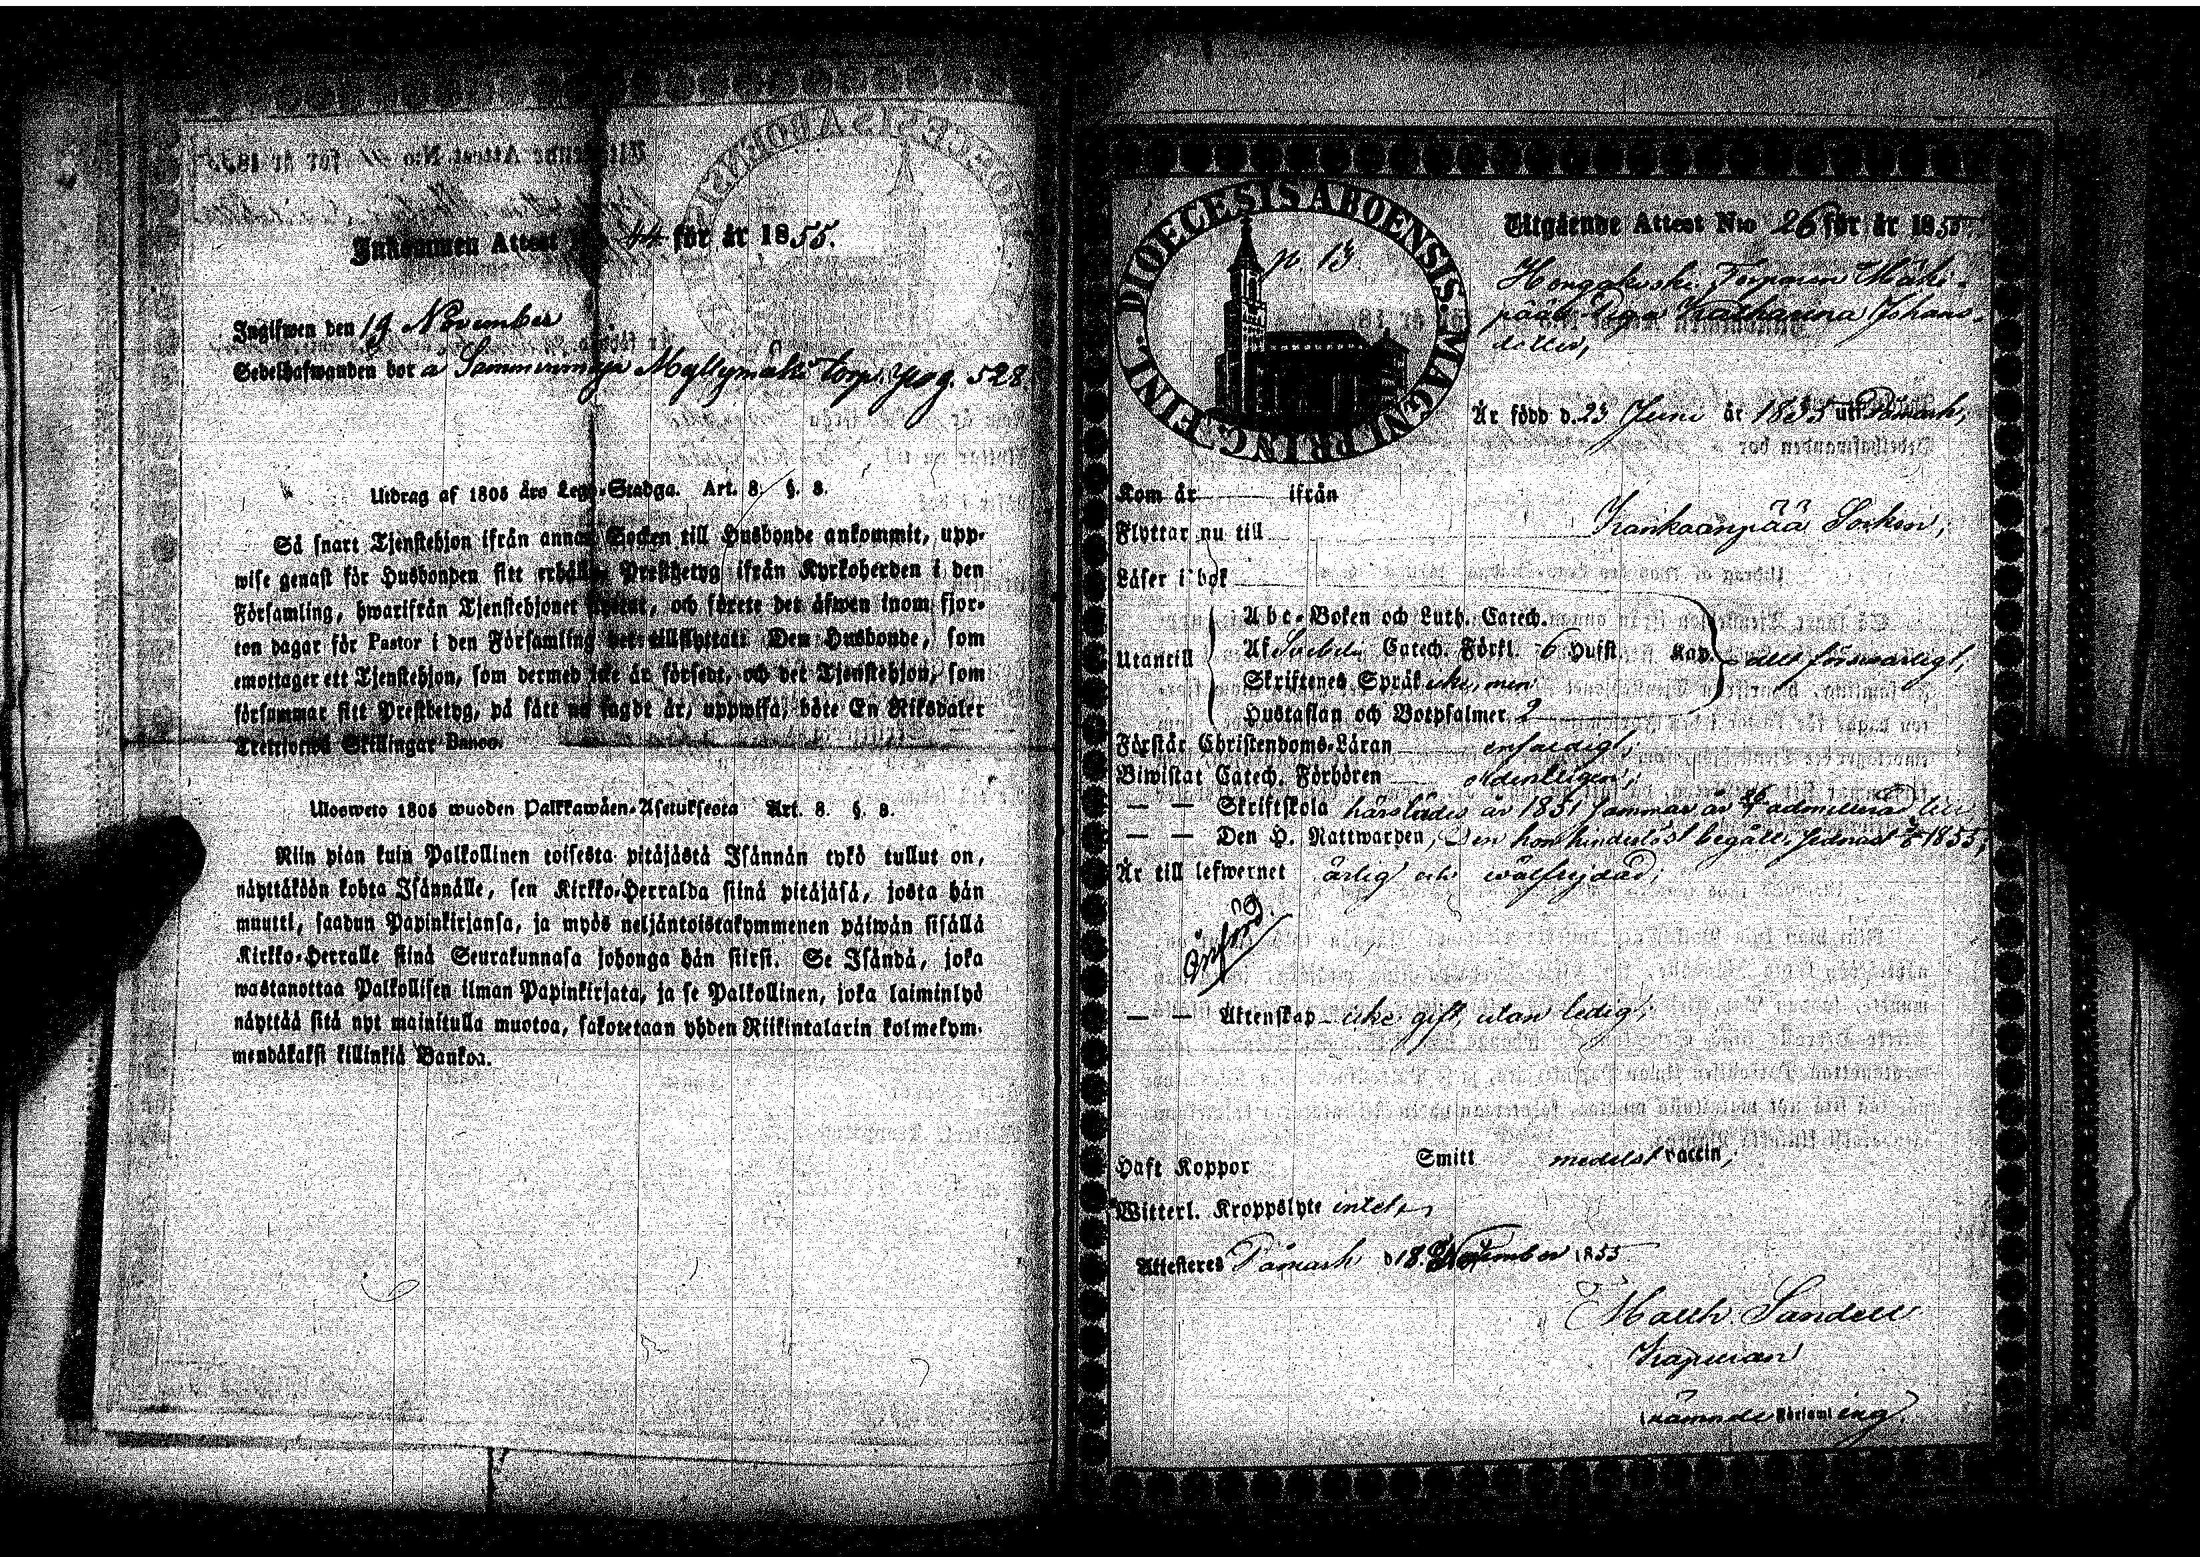 Inkommen Attest 44 för år 1855.
Ingifwen den 19 November
Sedelhafwanden bor å Sammi Myllymäki torp. pag. 528.
Utdrag af 1805 års Lego-Stadga. Art. 8. §. 8.
Så snart Tjenstehjon ifrån annan Socken till Husbonde ankommit, upp-
wise genast för Husbonden sitt erhållna Prestbetyg ifrån Kyrkoherden i den
Församling, hwarifrån Tjenstehjonet flyttat, och förete det äfwen inom fjor-
ton dagar för Pastor i den Församling det tillflyttat. Den Husbonde, som
emottager ett Tjenstehjon, som dermed icke är försedt, och det Tjenstehjon, som
försummar sitt Prestbetyg, på sätt nu sagdt är, uppwisa, böte En Riksdaler
Trettiotwå Skillingar Banco.
Ulosweto 1805 wuoden Palkkawäen-Asetuksesta Art. 8. §. 8.
Niin pian kuin Palkollinen toisesta pitäjästä Isännän tykö tullut on,
näyttäköön kohta Isännälle, sen Kirkko-Herralda siinä pitäjäsä, josta hän
muutti, saadun Papinkirjansa, ja myös neljäntoistakymmenen päiwän sisällä
Kirkko-Herralle siinä Seurakunnasa johonga hän siirsi. Se Isändä, joka
wastanottaa Palkollisen ilman Papinkirjata, ja se Palkollinen, joka laiminlyö
näyttää sitä nyt mainitulla muotoa, sakotetaan yhden Riikintalarin kolmekym-
mendäkaksi killinkiä Bankoa.
DIOECESIS ABOENSIS. MAGNI PRINC. FINL.
p. 13.
Utgående Attest N:o 26 för år 1855.
Hongakoski Torparen Mäki-
pää Piga Katharina Johans-
dotter,
Är född d. 23 Juni år 1835 uti Påmark,
Kom år ifrån
Flyttar nu till Kankaanpää Socken,
Läser i bok
Abc-Boken och Luth. Catech.
Utantill Af Svebelii Catech. Förkl. 6 Hufst. Kap. allt förswarligt,
Skriftenes Språk icke, men
Hustaflan och Botpsalmer 2
Förstår Christendoms-Läran enfaldigt,
Biwistat Catech. Förhören ordentligen,
— — Skriftskola härstädes år 1851 sammas år admitterad till
— — Den H. Nattwarden, den hon hinderlöst begått, senast 1855,
Är till lefwernet ärlig och wälfrejdad,
Införd.
— — Äktenskap icke gift, utan ledig,
Haft Koppor Smitt medelst vaccin,
Witterl. Kroppslyte intet,
Attesteras Påmark d 18. November 1855
Matth. Sandell
Kapellan
i nämnde Församling.